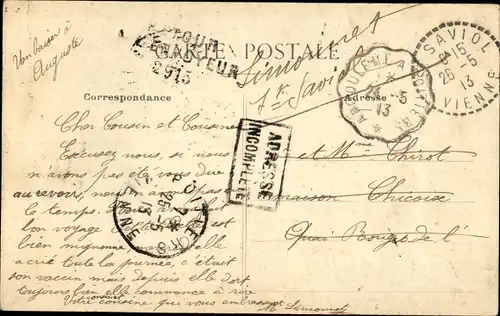 Un baiser à
Auguste
RETOUR
A L'ENVOYEUR
2915
CARTE POSTALE
Simonnet
St Saviol
Correspondance
Adresse
ANGOULEME A POITIERS
24-5
13
SAVIOL
15
26-5
13
VIENNE
ADRESSE
INCOMPLÈTE
POITIERS
25-5
13
VIENNE
Cher Cousin et Cousine
Excusez nous, si nous
n'avons pas été vous dire
au revoir, nous n'avons pas
le temps. Nous avons fait
bon voyage
bien mignonne
a crié toute la journée, c'était
son vaccin mais depuis elle dort
toujours bien elle commence à rire
Votre cousine qui vous embrasse
M. Simonnet
et Mme Chirot
maison Chicoise
Quai Rouget de l'